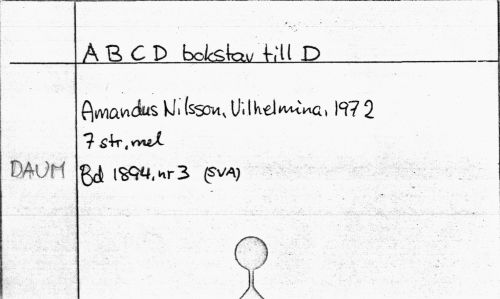 A B C D bokstav till D
Amandus Nilsson, Vilhelmina, 1972
7 str, mel
DAUM Bd 1894, nr 3 (SVA)